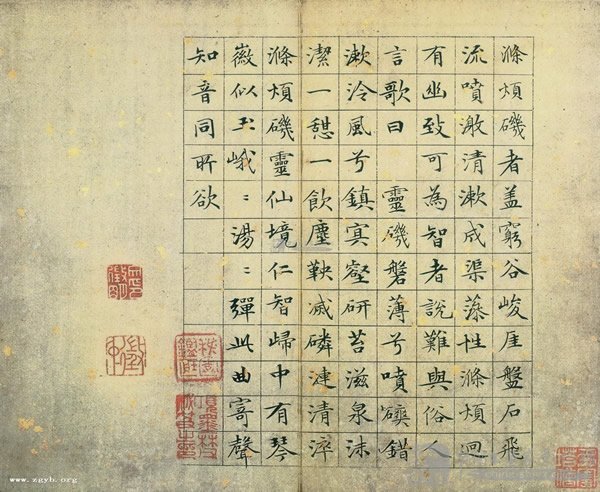 滌煩磯者盖窮谷峻厓盤石飛
流噴激清漱成渠藻性滌煩迴
有幽致可為智者說難與俗人
言歌曰 靈磯磐薄兮噴錯
漱泠風兮鎮冥壑研苔滋泉沫
潔一憩一飲塵鞅減磷漣清淬
滌煩磯靈仙境仁智歸中有琴
徽似玉峨〻湯〻彈此曲寄聲
知音同所欲
www.zgyb.org